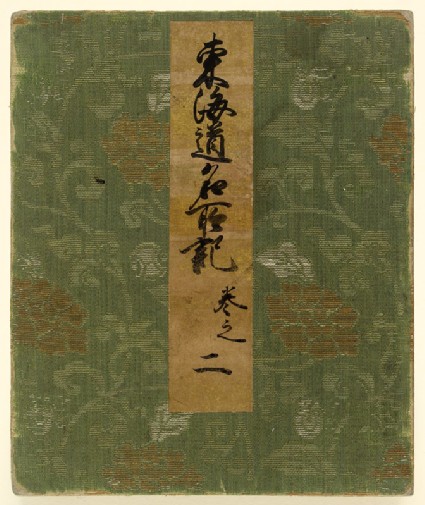 東海道名所記 巻之二